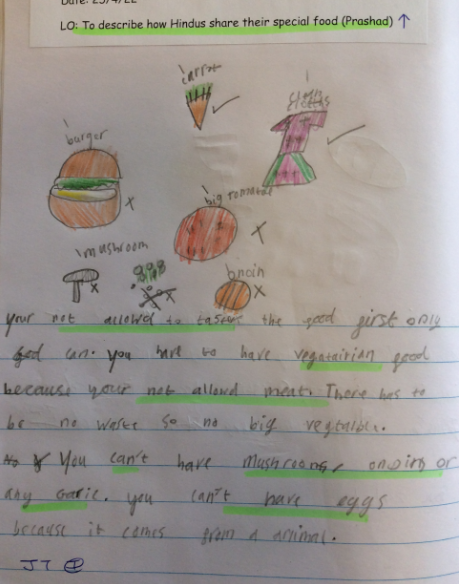 LO: To describe how Hindus share their special food (Prashad) ↑
carrot
burger
big tomatoe
mushroom
onoin
your not allowed to tasture the food first only
God can. you have to have vegatairian food
because your not allowed meat. There has to
be no waste so no big vegtalble.
You can't have mushrooms, onoins or
any Garlic. you can't have eggs
because it comes from a animal.
JT